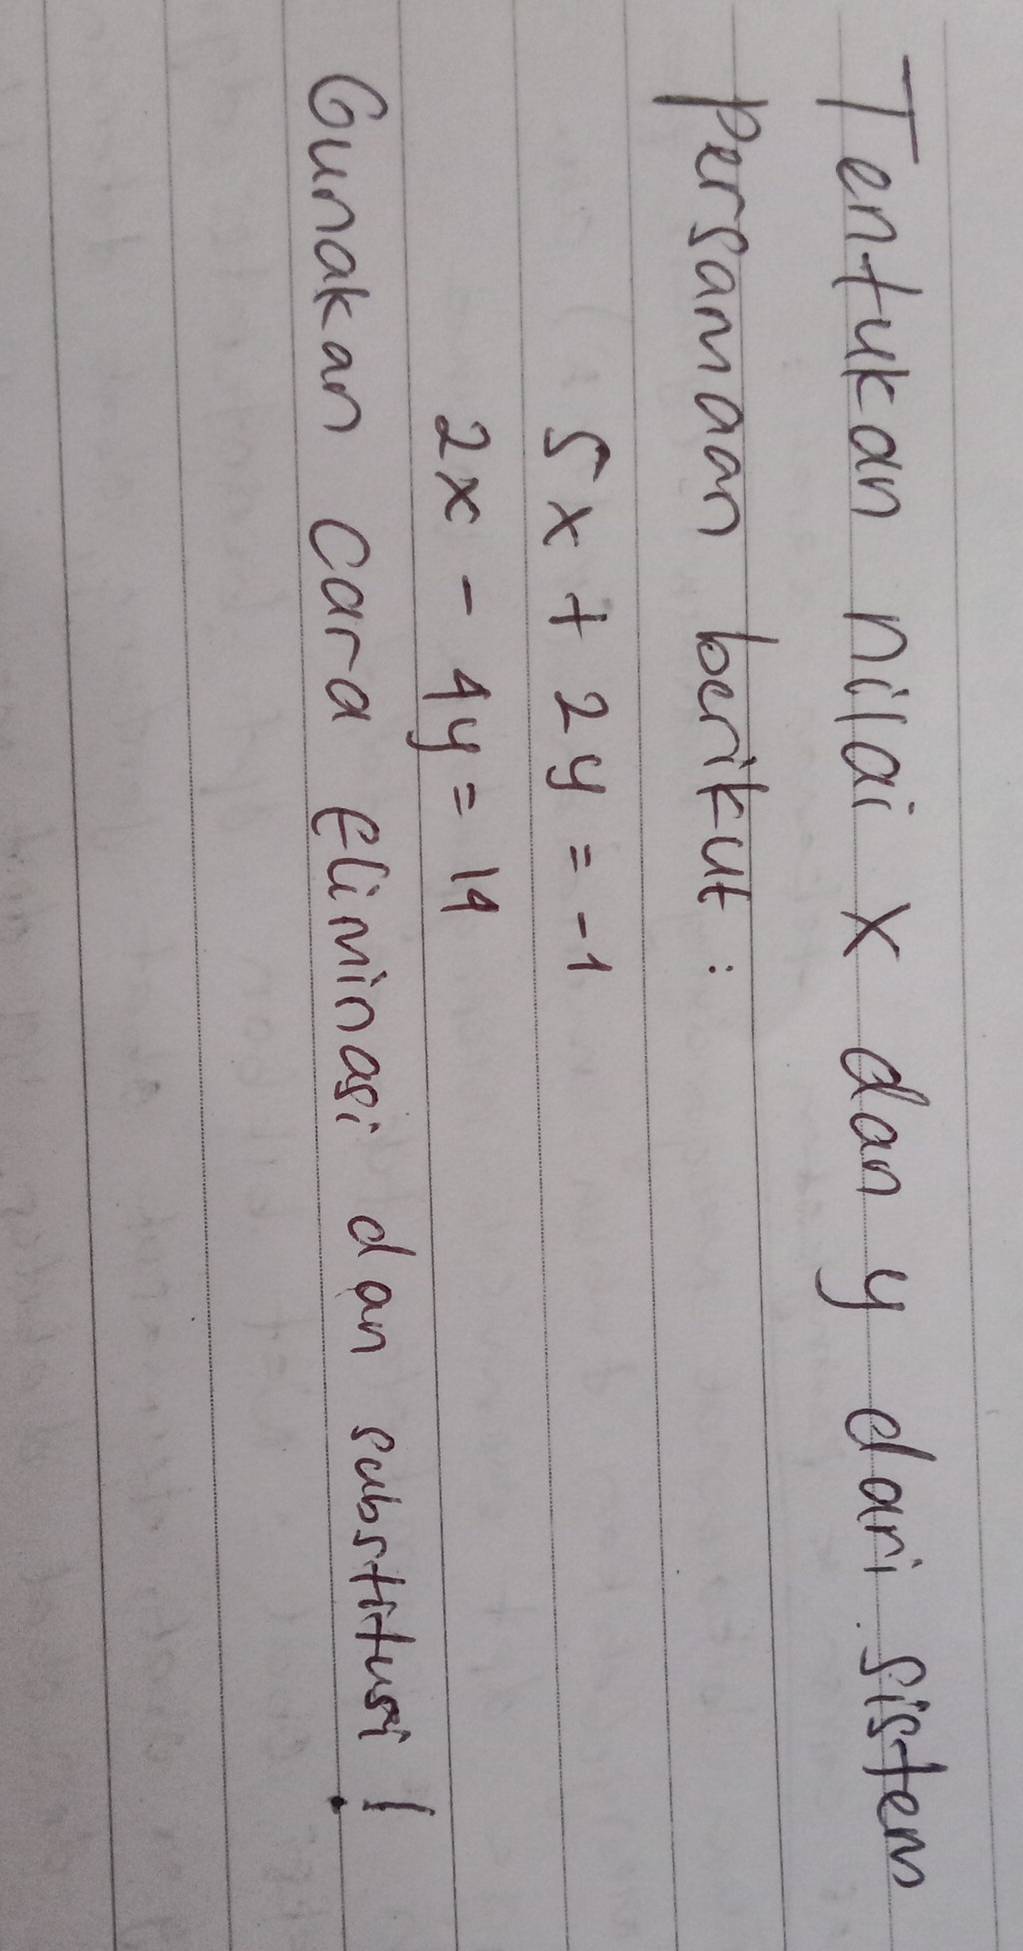 Tentukan nilai x dan y dari sistem
persamaan berikut :
5x + 2y = -1
2x - 4y = 14
Gunakan cara Eliminasi dan substitusi !